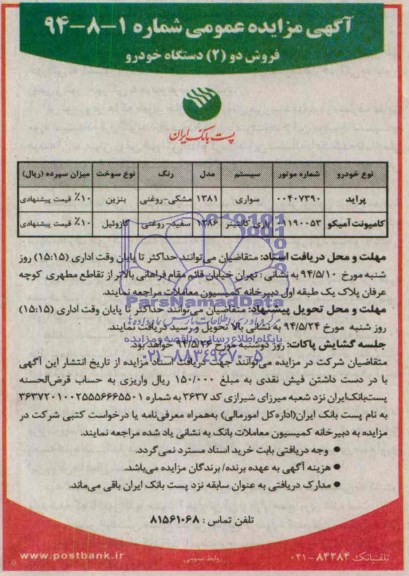 آگهی مزایده عمومی شماره ۱-۸-۹۴
فروش دو (۲) دستگاه خودرو
پست بانک ایران
نوع خودرو شماره موتور سیستم مدل رنگ نوع سوخت میزان سپرده (ریال)
پراید ۰۰۴۰۷۳۹۰ سواری ۱۳۸۱ مشکی-روغنی بنزین ۱۰٪ قیمت پیشنهادی
کامیونت آمیکو ۱۹۰۰۵۳ باری کانتینر ۱۳۸۶ سفید روغنی گازوئیل ۱۰٪ قیمت پیشنهادی
مهلت و محل دریافت اسناد: متقاضیان می‌توانند حداکثر تا پایان وقت اداری (۱۵:۱۵) روز
شنبه مورخ ۹۴/۵/۱۰ به نشانی: تهران خیابان قائم مقام فراهانی بالاتر از تقاطع مطهری کوچه
عرفان پلاک یک طبقه اول دبیرخانه کمیسیون معاملات مراجعه نمایند.
ParsNamadData
مهلت و محل تحویل پیشنهاد: متقاضیان می‌توانند حداکثر تا پایان وقت اداری (۱۵:۱۵)
روز شنبه مورخ ۹۴/۵/۲۴ به نشانی بالا تحویل و رسید دریافت نمایند.
پایگاه اطلاع رسانی مناقصه و مزایده
جلسه گشایش پاکات: روز دوشنبه مورخ ۹۴/۵/۲۶ خواهد بود.
۰۲۱-۸۸۳۴۹۶۷۰-۵
متقاضیان شرکت در مزایده می‌توانند جهت دریافت اسناد مزایده از تاریخ انتشار این آگهی
با در دست داشتن فیش نقدی به مبلغ ۱۵۰/۰۰۰ ریال واریزی به حساب قرض‌الحسنه
پست‌بانک‌ایران نزد شعبه میرزای شیرازی کد ۳۶۳۷ به شماره ۳۶۳۷۲۰۱۰۰۲۵۵۵۶۶۶۵۵۰۱
به نام پست بانک ایران(اداره‌کل امورمالی) به‌همراه معرفی‌نامه یا درخواست کتبی شرکت در
مزایده به دبیرخانه کمیسیون معاملات بانک به نشانی یاد شده مراجعه نمایند.
● وجه دریافتی بابت خرید اسناد مسترد نمی‌گردد.
● هزینه آگهی به عهده برنده/ برندگان مزایده می‌باشد.
● مدارک دریافتی به عنوان سابقه نزد پست بانک ایران باقی می‌ماند.
تلفن تماس : ۸۱۵۶۱۰۶۸
www.postbank.ir روابط عمومی تلفنبانک: ۸۳۳۸۴-۰۲۱